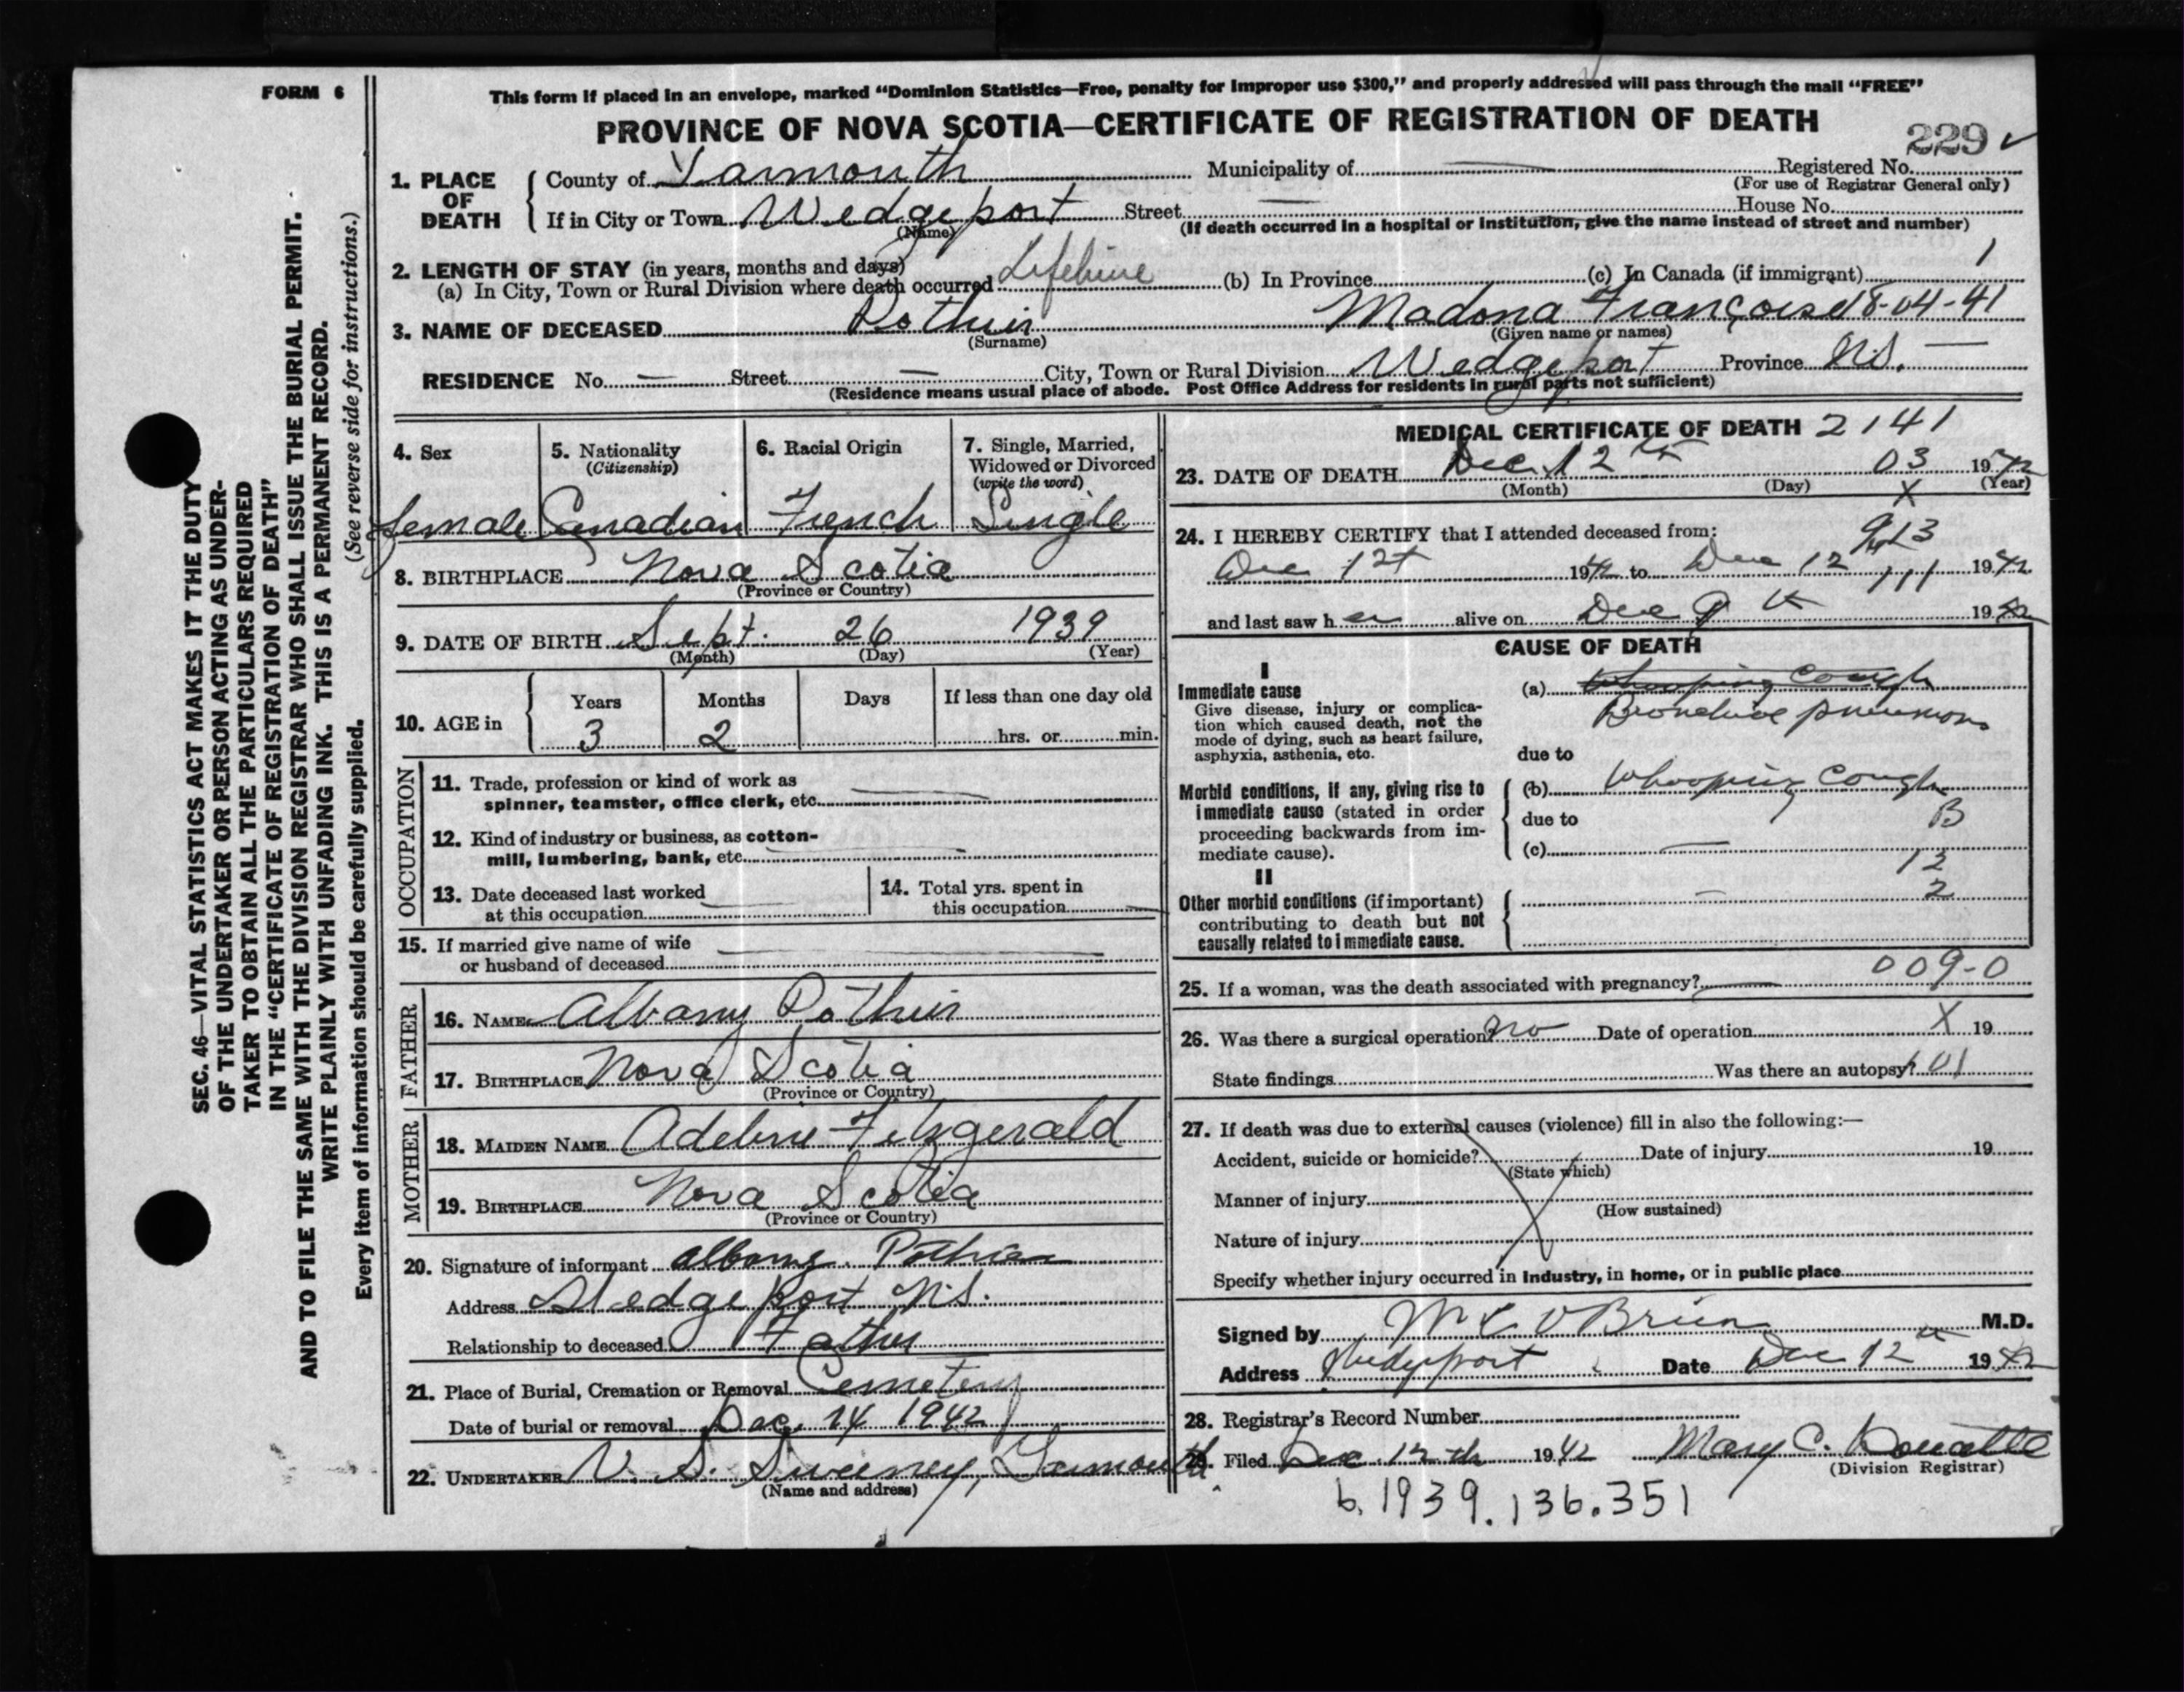 FORM 6
This form if placed in an envelope, marked "Dominion Statistics—Free, penalty for improper use $300," and properly addressed will pass through the mail "FREE"
PROVINCE OF NOVA SCOTIA—CERTIFICATE OF REGISTRATION OF DEATH
229
1. PLACE OF DEATH
County of Yarmouth Municipality of Registered No.
(For use of Registrar General only)
If in City or Town Wedgeport Street House No.
(Name) (If death occurred in a hospital or institution, give the name instead of street and number)
2. LENGTH OF STAY (in years, months and days)
(a) In City, Town or Rural Division where death occurred Lifetime (b) In Province (c) In Canada (if immigrant) 1
3. NAME OF DECEASED Pothier Madona Françoise 18-04-41
(Surname) (Given name or names)
RESIDENCE No. Street City, Town or Rural Division Wedgeport Province N.S.
(Residence means usual place of abode. Post Office Address for residents in rural parts not sufficient)
4. Sex 5. Nationality (Citizenship) 6. Racial Origin 7. Single, Married, Widowed or Divorced (write the word)
female Canadian French Single
8. BIRTHPLACE Nova Scotia
(Province or Country)
9. DATE OF BIRTH Sept. 26 1939
(Month) (Day) (Year)
10. AGE in Years Months Days If less than one day old
3 2 hrs. or min.
OCCUPATION
11. Trade, profession or kind of work as
spinner, teamster, office clerk, etc.
12. Kind of industry or business, as cotton-
mill, lumbering, bank, etc.
13. Date deceased last worked
at this occupation
14. Total yrs. spent in
this occupation
15. If married give name of wife
or husband of deceased
FATHER
16. NAME Albany Pothier
17. BIRTHPLACE Nova Scotia
(Province or Country)
MOTHER
18. MAIDEN NAME Adeline Fitzgerald
19. BIRTHPLACE Nova Scotia
(Province or Country)
20. Signature of informant Albany Pothier
Address Wedgeport N.S.
Relationship to deceased Father
21. Place of Burial, Cremation or Removal Cemetery
Date of burial or removal Dec. 14 1942
22. UNDERTAKER V. S. Sweeney, Yarmouth
(Name and address)
MEDICAL CERTIFICATE OF DEATH 2141
23. DATE OF DEATH Dec. 12th 03 1942
(Month) (Day) (Year)
X
24. I HEREBY CERTIFY that I attended deceased from:
Dec 1st 1942 to Dec 12 111 1942
and last saw her alive on Dec 9th 1942
CAUSE OF DEATH
I
Immediate cause
Give disease, injury or complica-
tion which caused death, not the
mode of dying, such as heart failure,
asphyxia, asthenia, etc.
(a) Whooping Cough
due to
Morbid conditions, if any, giving rise to
immediate cause (stated in order
proceeding backwards from im-
mediate cause).
(b) Whooping Cough
due to B
(c)
12
II
2
Other morbid conditions (if important)
contributing to death but not
causally related to immediate cause.
009-0
25. If a woman, was the death associated with pregnancy?
26. Was there a surgical operation? No Date of operation X 19
State findings Was there an autopsy? 01
27. If death was due to external causes (violence) fill in also the following:—
Accident, suicide or homicide? Date of injury 19
(State which)
Manner of injury
(How sustained)
Nature of injury
Specify whether injury occurred in Industry, in home, or in public place
Signed by O'Brien M.D.
Address Wedgeport Date Dec 12th 1942
28. Registrar's Record Number
29. Filed Dec. 12th 1942 Mary C.
(Division Registrar)
b. 1939. 136. 351
SEC. 46—VITAL STATISTICS ACT MAKES IT THE DUTY
OF THE UNDERTAKER OR PERSON ACTING AS UNDER-
TAKER TO OBTAIN ALL THE PARTICULARS REQUIRED
IN THE "CERTIFICATE OF REGISTRATION OF DEATH"
AND TO FILE THE SAME WITH THE DIVISION REGISTRAR WHO SHALL ISSUE THE BURIAL PERMIT.
WRITE PLAINLY WITH UNFADING INK. THIS IS A PERMANENT RECORD.
(See reverse side for instructions.)
Every item of information should be carefully supplied.